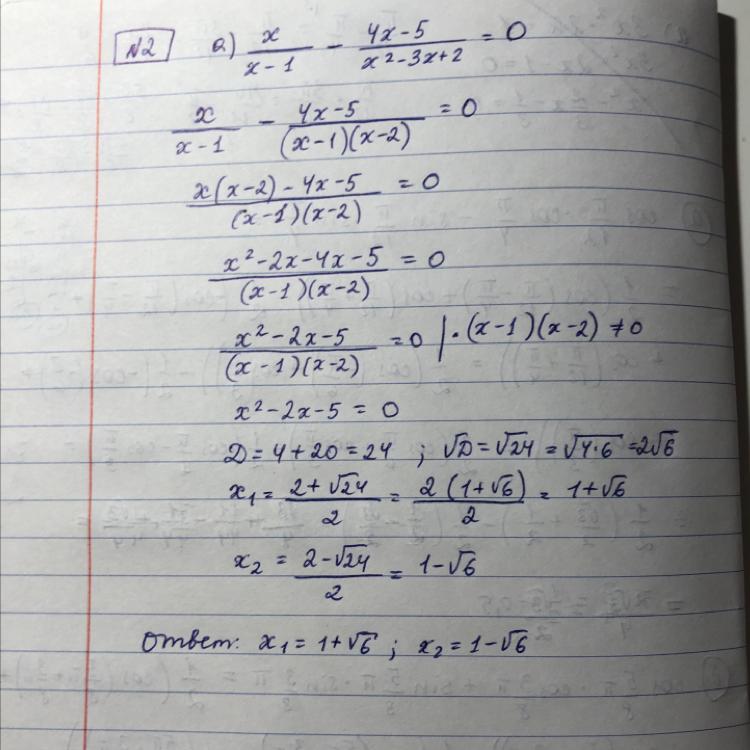 N2 a) x/(x-1) - (4x-5)/(x²-3x+2) = 0
x/(x-1) - (4x-5)/((x-1)(x-2)) = 0
(x(x-2)-4x-5)/((x-1)(x-2)) = 0
(x²-2x-4x-5)/((x-1)(x-2)) = 0
(x²-2x-5)/((x-1)(x-2)) = 0 | ·(x-1)(x-2) ≠ 0
x²-2x-5 = 0
D = 4+20 = 24 ; √D = √24 = √4·6 = 2√6
x₁ = (2+√24)/2 = 2(1+√6)/2 = 1+√6
x₂ = (2-√24)/2 = 1-√6
Ответ: x₁ = 1+√6 ; x₂ = 1-√6